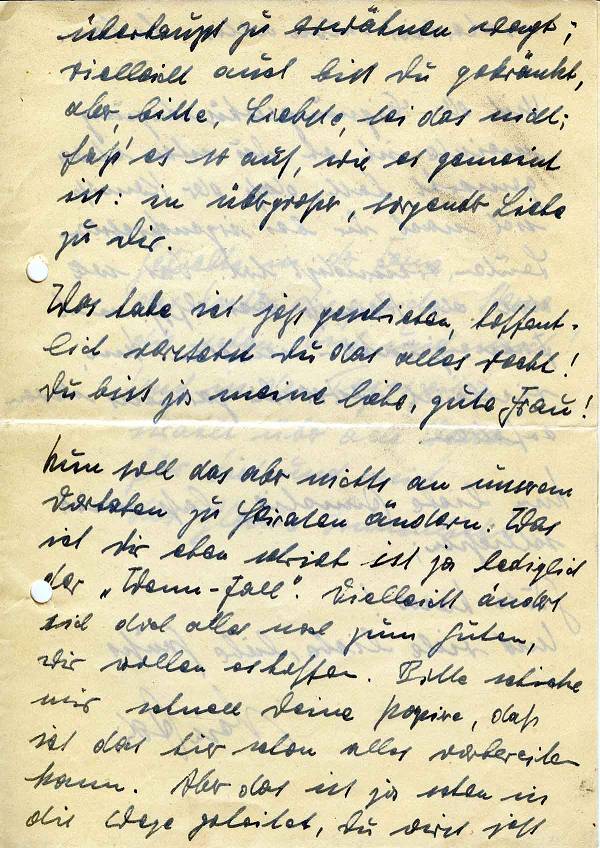 überhaupt zu erwähnen wagt;
vielleicht auch bist Du gekränkt,
aber, bitte, Liebste, sei das nicht;
faß' es so auf, wie es gemeint
ist: in übergroßer, sorgender Liebe
zu Dir.
Was habe ich jetzt geschrieben, hoffent-
lich verstehst Du das alles recht!
Du bist ja meine liebe, gute Frau!
Nun soll das aber nichts an unserem
Vorhaben zu Heiraten ändern. Was
ich Dir eben schrieb ist ja lediglich
der „Wenn-Fall". Vielleicht ändert
sich doch alles noch zum Guten,
wir wollen es hoffen. Bitte schicke
mir schnell Deine Papire, daß
ich das hier schon alles vorbereiten
kann. Aber das ist ja schon in
die Wege geleitet, Du wirst jetzt